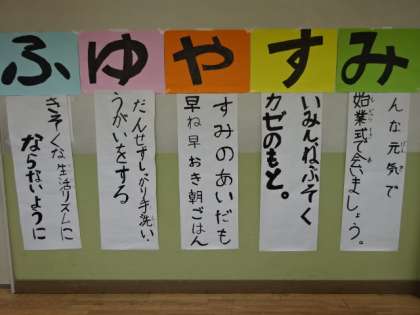 ふゆやすみ
きそくな生活リズムに
ならないように
だんせずしっかり手洗い・
うがいをする
すみのあいだも
早ね早おき朝ごはん
いみんねぶそく
カゼのもと。
んな元気で
始業式で会いましょう。